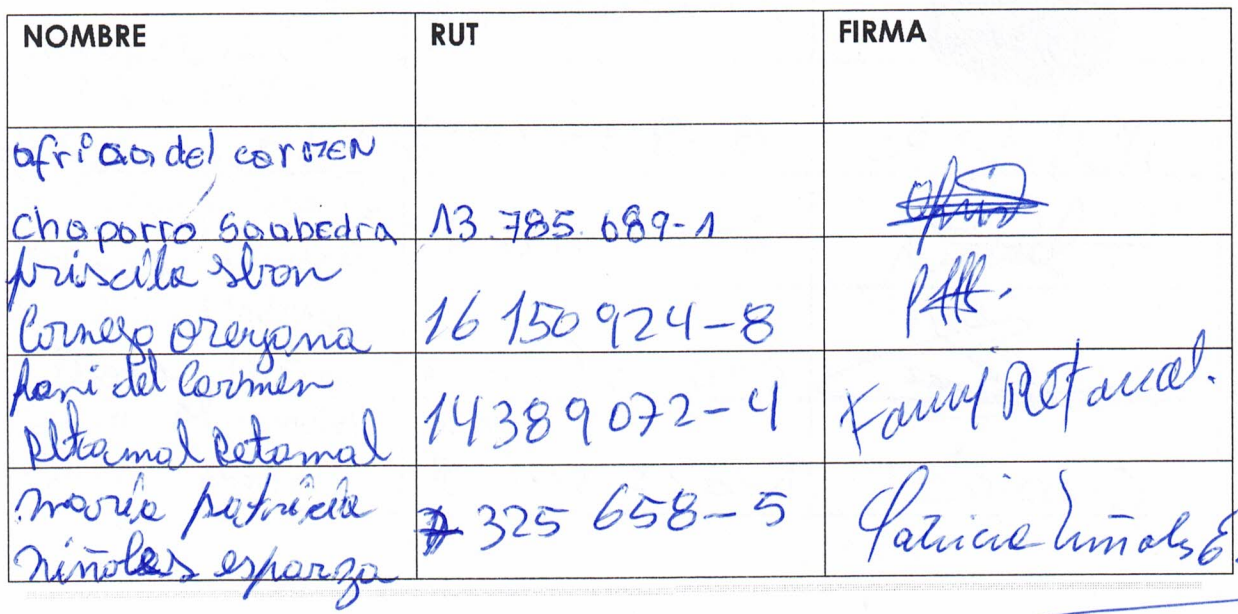 NOMBRE RUT FIRMA
africa del carmen
chaparro Saabedra 13.785.689-1
priscila sbon
Cornejo oreyana 16 150 924-8
fani del Carmen
Retamal Retamal 14389072-4 Fanny Retamal.
maría patricia
niñoles esparza 7 325 658-5 Patricia Niñoles E.